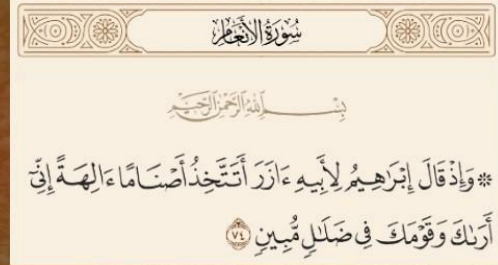 سُورَةُ الأَنْعَامِ
بِسْمِ اللَّهِ الرَّحْمَٰنِ الرَّحِيمِ
۞ وَإِذْ قَالَ إِبْرَٰهِيمُ لِأَبِيهِ ءَازَرَ أَتَتَّخِذُ أَصْنَامًا ءَالِهَةً إِنِّىٓ
أَرَىٰكَ وَقَوْمَكَ فِى ضَلَٰلٍ مُّبِينٍ ٧٤